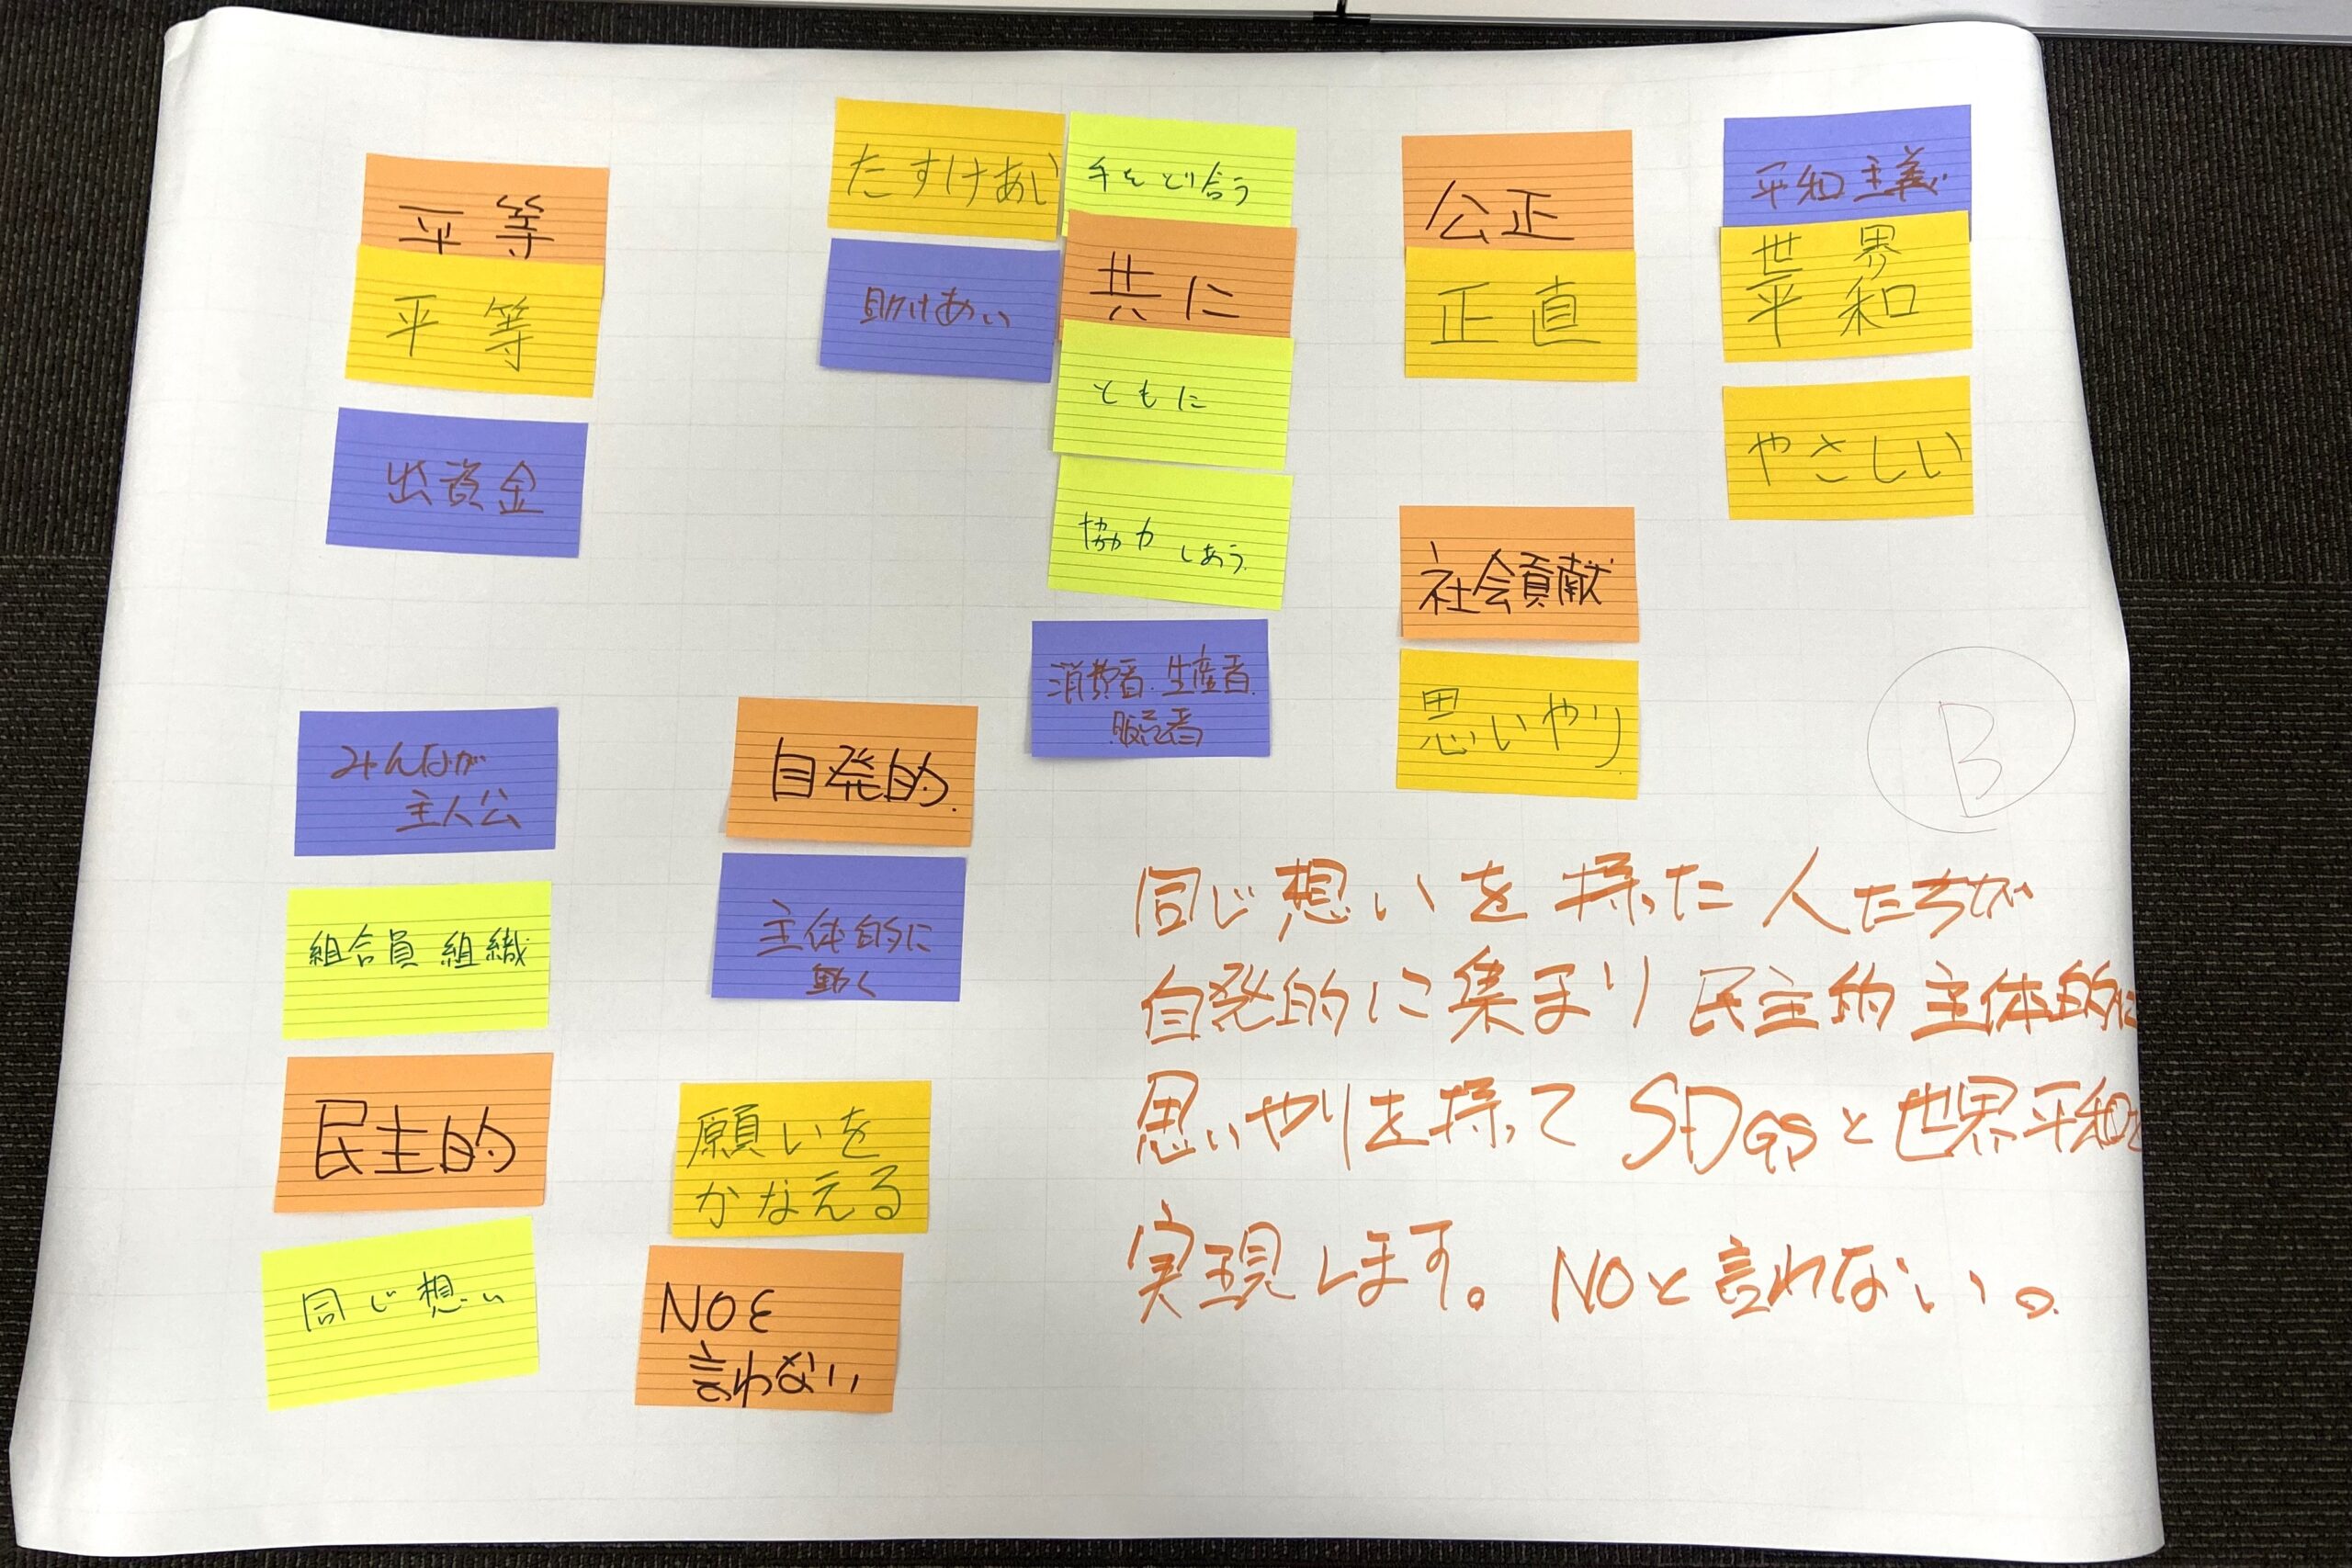 平等
平等
出資金
たすけあい
助けあい
手をとり合う
共に
ともに
協力しあう
消費者.生産者.
販売者
公正
正直
社会貢献
思いやり
平和主義
世界
平和
やさしい
B
みんなが
主人公
組合員 組織
民主的
同じ想い
自発的.
主体的に
動く
願いを
かなえる
NOと
言わない
同じ想いを持った人たちが
自発的に集まり 民主的 主体的に
思いやりを持って SDGSと世界平和を
実現します。 NOと言わない。